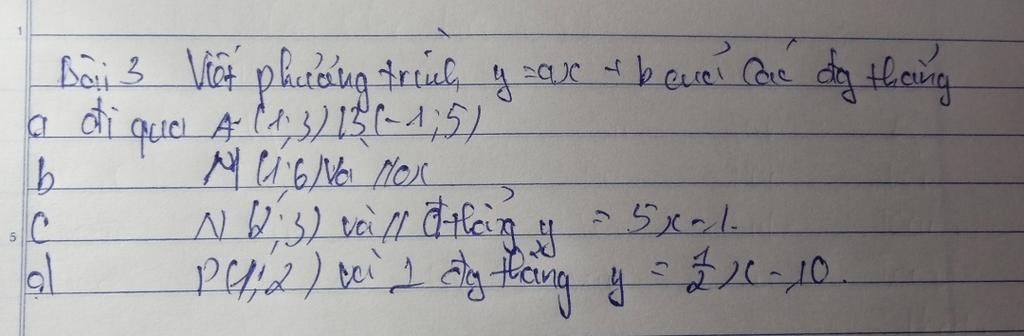 1
Bài 3 Viết phương trình y = ax + b của các đg thẳng
a đi qua A (1;3) B(-1;5)
b M (1;6) Và // ox
c N (2;3) và // đ thẳng y = 5x-1.
5
d P(1;2) và ⊥ đg thẳng y = 1/2 x - 10.